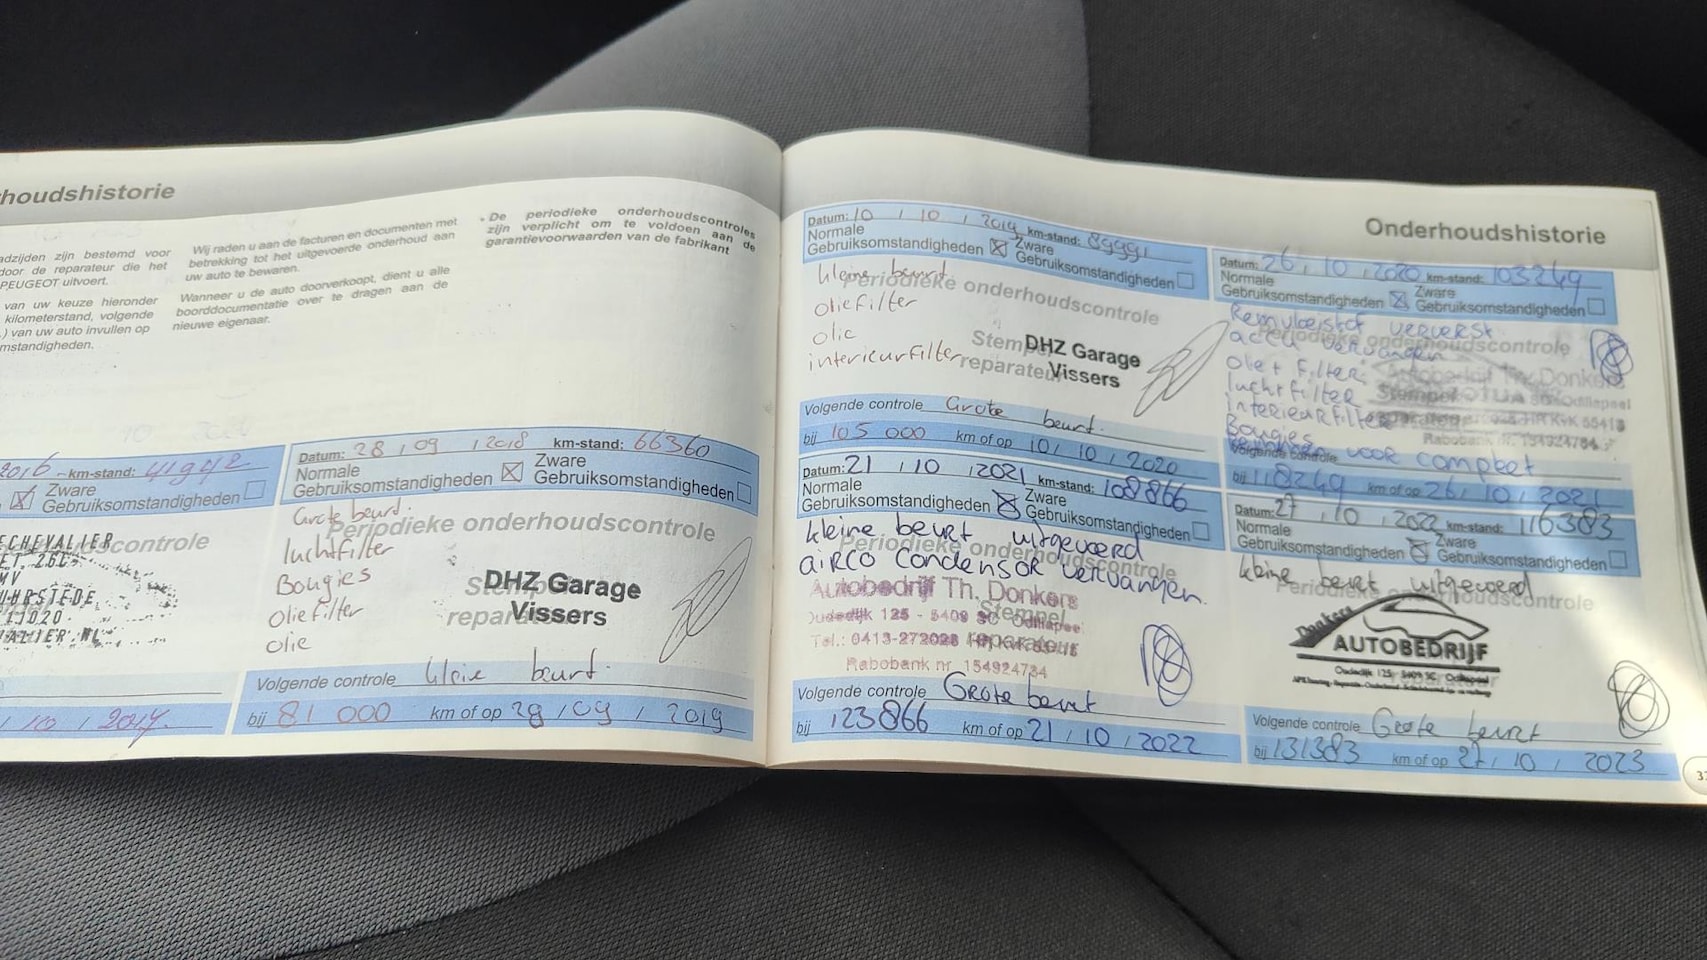 houdshistorie
adzijden zijn bestemd voor
door de reparateur die het
PEUGEOT uitvoert.
van uw keuze hieronder
kilometerstand, volgende
.) van uw auto invullen op
mstandigheden.
Wij raden u aan de facturen en documenten met
betrekking tot het uitgevoerde onderhoud aan
uw auto te bewaren.
Wanneer u de auto doorverkoopt, dient u alle
boorddocumentatie over te dragen aan de
nieuwe eigenaar.
- De periodieke onderhoudscontroles
zijn verplicht om te voldoen aan de
garantievoorwaarden van de fabrikant
2016 km-stand: 41942
Zware
Gebruiksomstandigheden
dscontrole
ECHEVALIER
1 / 10 / 2017
Datum: 28 / 09 / 2018 km-stand: 66360
Normale
Gebruiksomstandigheden
Zware
Gebruiksomstandigheden
Grote beurt.
Periodieke onderhoudscontrole
luchtfilter
Bougies
oliefilter
olie
Stempel
reparateur
DHZ Garage
Vissers
Volgende controle kleine beurt.
bij 81 000 km of op 28 / 09 / 2019
Onderhoudshistorie
Datum: 10 / 10 / 2019 km-stand: 89991
Normale
Gebruiksomstandigheden
Zware
Gebruiksomstandigheden
kleine beurt
Periodieke onderhoudscontrole
oliefilter
olie
interieurfilter
Stempel
reparateur
DHZ Garage
Vissers
Volgende controle Grote beurt.
bij 105 000 km of op 10 / 10 / 2020
Datum: 21 / 10 / 2021 km-stand: 108866
Normale
Gebruiksomstandigheden
Zware
Gebruiksomstandigheden
kleine beurt uitgevoerd
Periodieke onderhoudscontrole
airco condensor vervangen.
Autobedrijf Th. Donkers
Stempel
Oudedijk 125 - 5409 SC Odiliapeel
Tel.: 0413-272028
reparateur
Rabobank nr. 154924784
Volgende controle Grote beurt
bij 123866 km of op 21 / 10 / 2022
Datum: 26 / 10 / 2020 km-stand: 103249
Normale
Gebruiksomstandigheden
Zware
Gebruiksomstandigheden
Remvloeistof ververst.
Periodieke onderhoudscontrole
accu vervangen
olie + filter
luchtfilter
interieurfilter
Bougies
Autobedrijf Th. Donkers
Stempel
Rabobank nr. 154924784
voor compleet
Volgende controle
bij 118249 km of op 26 / 10 / 2021
Datum: 27 / 10 / 2022 km-stand: 116383
Normale
Gebruiksomstandigheden
Zware
Gebruiksomstandigheden
kleine beurt uitgevoerd
Periodieke onderhoudscontrole
Donkers
AUTOBEDRIJF
Oudedijk 125 - 5409 SC Odiliapeel
Volgende controle Grote beurt
bij 131383 km of op 27 / 10 / 2023